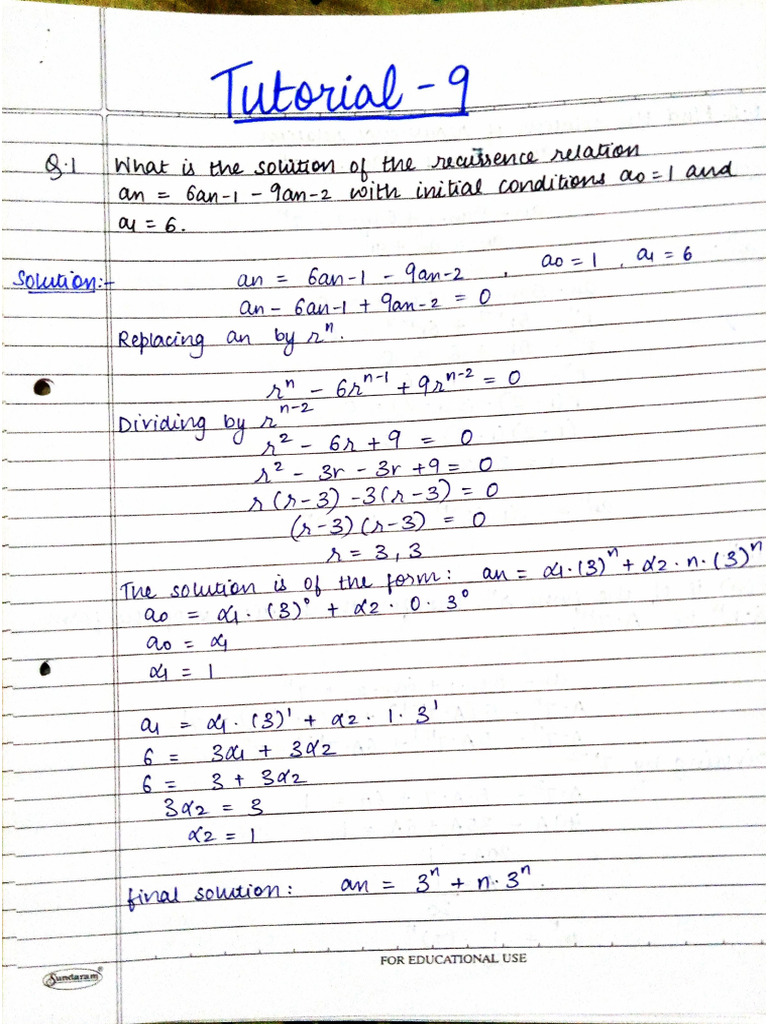 Tutorial - 9
Q.1 What is the solution of the recurrence relation
an = 6an-1 - 9an-2 with initial conditions a0 = 1 and
a1 = 6.
Solution:- an = 6an-1 - 9an-2 , a0 = 1 , a1 = 6
an - 6an-1 + 9an-2 = 0
Replacing an by r^n.
r^n - 6r^n-1 + 9r^n-2 = 0
Dividing by r^n-2
r² - 6r + 9 = 0
r² - 3r - 3r + 9 = 0
r(r-3) -3(r-3) = 0
(r-3)(r-3) = 0
r = 3, 3
The solution is of the form: an = α1·(3)^n + α2·n·(3)^n
a0 = α1·(3)⁰ + α2·0·3⁰
a0 = α1
α1 = 1
a1 = α1·(3)¹ + α2·1·3¹
6 = 3α1 + 3α2
6 = 3 + 3α2
3α2 = 3
α2 = 1
final solution: an = 3^n + n·3^n.
FOR EDUCATIONAL USE
Sundaram®